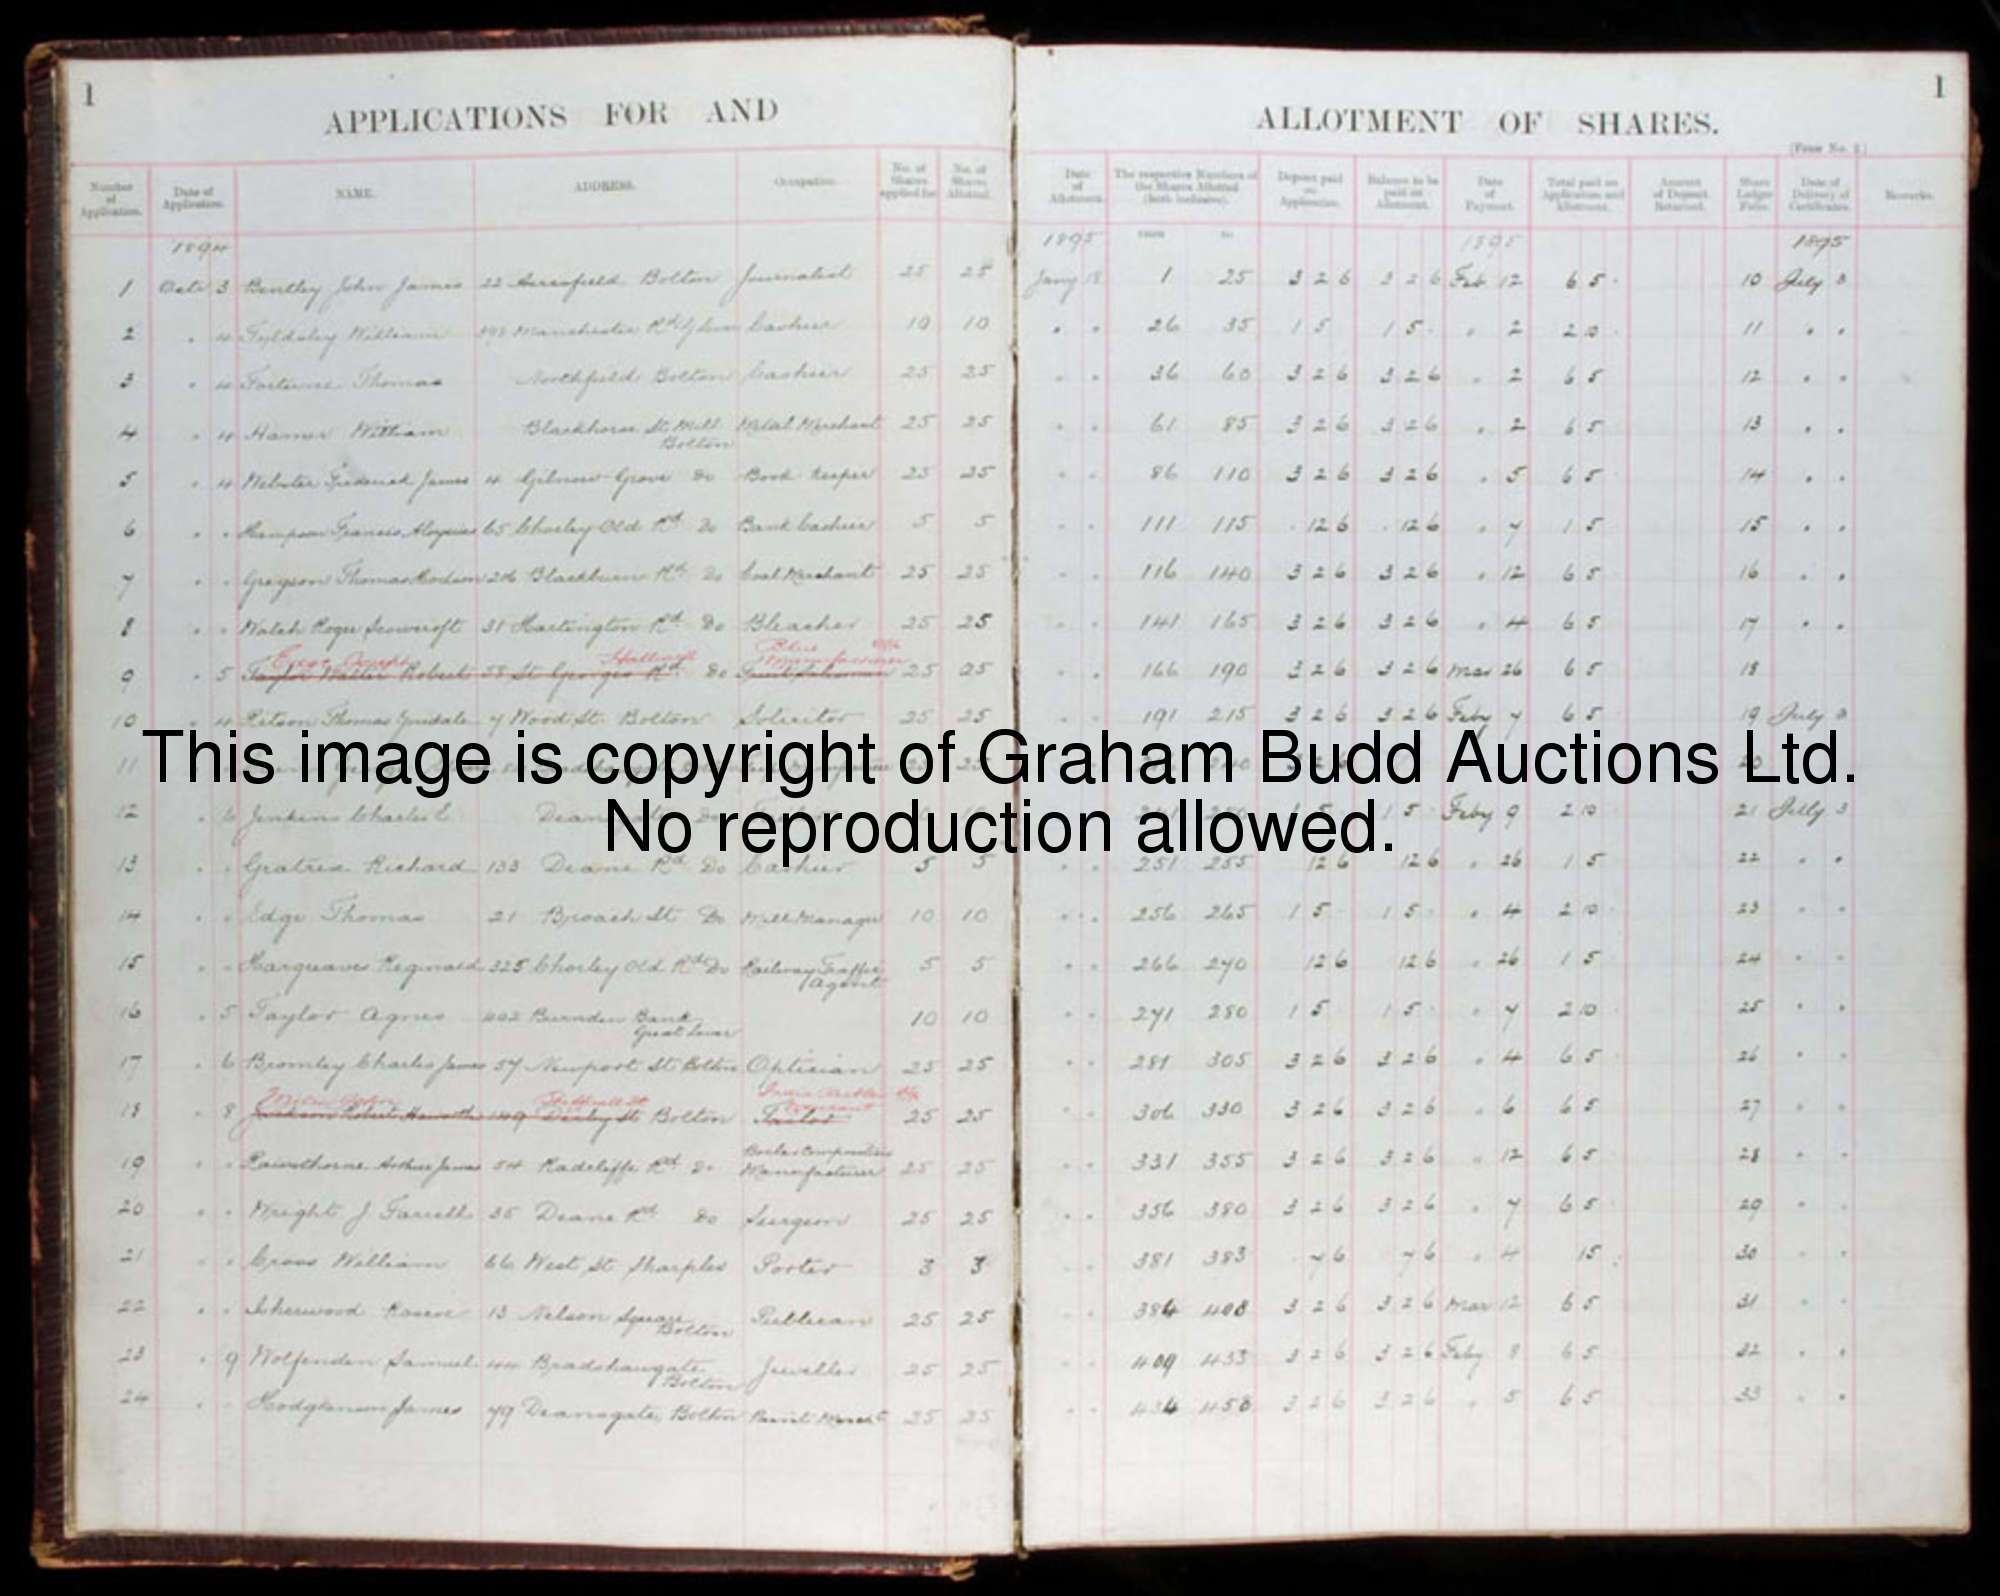 1
APPLICATIONS FOR AND
Number of Application.
Date of Application.
NAME.
ADDRESS.
Occupation.
No. of Shares applied for
No. of Shares Allotted.
1894
1 Octr 3 Bentley John James 22 Acresfield Bolton Journalist 25 25
2 " 4 Tyldsley William Manchester Rd Cashier 10 10
3 " 4 Fortune Thomas Northfield Bolton Cashier 25 25
4 " 4 Hamer William Blackhorse St Mill Bolton Metal Merchant 25 25
5 " 4 Webster Frederick James 4 Gilnow Grove Do Book Keeper 25 25
6 " " Hampson Francis Aloysius 65 Chorley Old Rd Do Bank Cashier 5 5
7 " " Gregson Thomas 206 Blackburn Rd Do Coal Merchant 25 25
8 " " Walsh Roger Scowcroft 31 Hartington Rd Do Bleacher 25 25
9 " 5 Taylor Walter Robert 58 St Georges Rd Do 25 25
10 " 4 Ritson Thomas 7 Wood St. Bolton Solicitor 25 25
11 25
12 " 6 Jenkins Charles E Do
13 " " Gratrix Richard 133 Deane Rd Do Cashier 5 5
14 " " Edge Thomas 21 Broach St Do Mill Manager 10 10
15 " " Hargreaves Reginald 325 Chorley Old Rd Do Railway Traffic Agent 5 5
16 " 5 Taylor Agnes 402 Burnden Bank Great Lever 10 10
17 " 6 Bromley Charles James 57 Newport St Bolton Optician 25 25
18 " 8 Jackson Robert Haworth 149 Derby St Bolton Tailor 25 25
19 " " Rawsthorne Arthur James 54 Radcliffe Rd Do Boiler Composition Manufacturer 25 25
20 " " Wright J Farrell 35 Deane Rd Do Surgeon 25 25
21 " " Cross William 66 West St Sharples Porter 3 3
22 " " Isherwood Roscoe 13 Nelson Square Bolton Publican 25 25
23 " 9 Wolfenden Samuel 44 Bradshawgate Bolton Jeweller 25 25
24 " " Hodgkinson James 79 Deansgate, Bolton 25 25
1
ALLOTMENT OF SHARES.
Date of Allotment.
The respective Numbers of the Shares Allotted (both inclusive).
Deposit paid on Application.
Balance to be paid on Allotment.
Date of Payment.
Total paid on Application and Allotment.
Amount of Deposit Returned.
Share Ledger Folio.
Date of Delivery of Certificates.
Remarks.
1895 1895 1895
Jany 18 1 25 3 2 6 3 2 6 Feb 12 6 5 10 July 3
" " 26 35 1 5 1 5 " 2 2 10 11 " "
" " 36 60 3 2 6 3 2 6 " 2 6 5 12 " "
" " 61 85 3 2 6 3 2 6 " 2 6 5 13 " "
" " 86 110 3 2 6 3 2 6 " 5 6 5 14 " "
" " 111 115 12 6 12 6 " 7 1 5 15 " "
" " 116 140 3 2 6 3 2 6 " 12 6 5 16 " "
" " 141 165 3 2 6 3 2 6 " 4 6 5 17 " "
" " 166 190 3 2 6 3 2 6 Mar 26 6 5 18
" " 191 215 3 2 6 3 2 6 Feby 7 6 5 19 July 3
1 5 Feby 9 2 10 21 July 3
" " 251 255 12 6 12 6 " 26 1 5 22 " "
" " 256 265 1 5 1 5 " 4 2 10 23 " "
" " 266 270 12 6 12 6 " 26 1 5 24 " "
" " 271 280 1 5 1 5 " 7 2 10 25 " "
" " 281 305 3 2 6 3 2 6 " 4 6 5 26 " "
" " 306 330 3 2 6 3 2 6 " 6 6 5 27 " "
" " 331 355 3 2 6 3 2 6 " 12 6 5 28 " "
" " 356 380 3 2 6 3 2 6 " 7 6 5 29 " "
" " 381 383 7 6 7 6 " 4 15 30 " "
" " 384 408 3 2 6 3 2 6 Mar 12 6 5 31 " "
" " 409 433 3 2 6 3 2 6 Feby 8 6 5 32 " "
" " 434 458 3 2 6 3 2 6 " 5 6 5 33 " "
This image is copyright of Graham Budd Auctions Ltd.
No reproduction allowed.